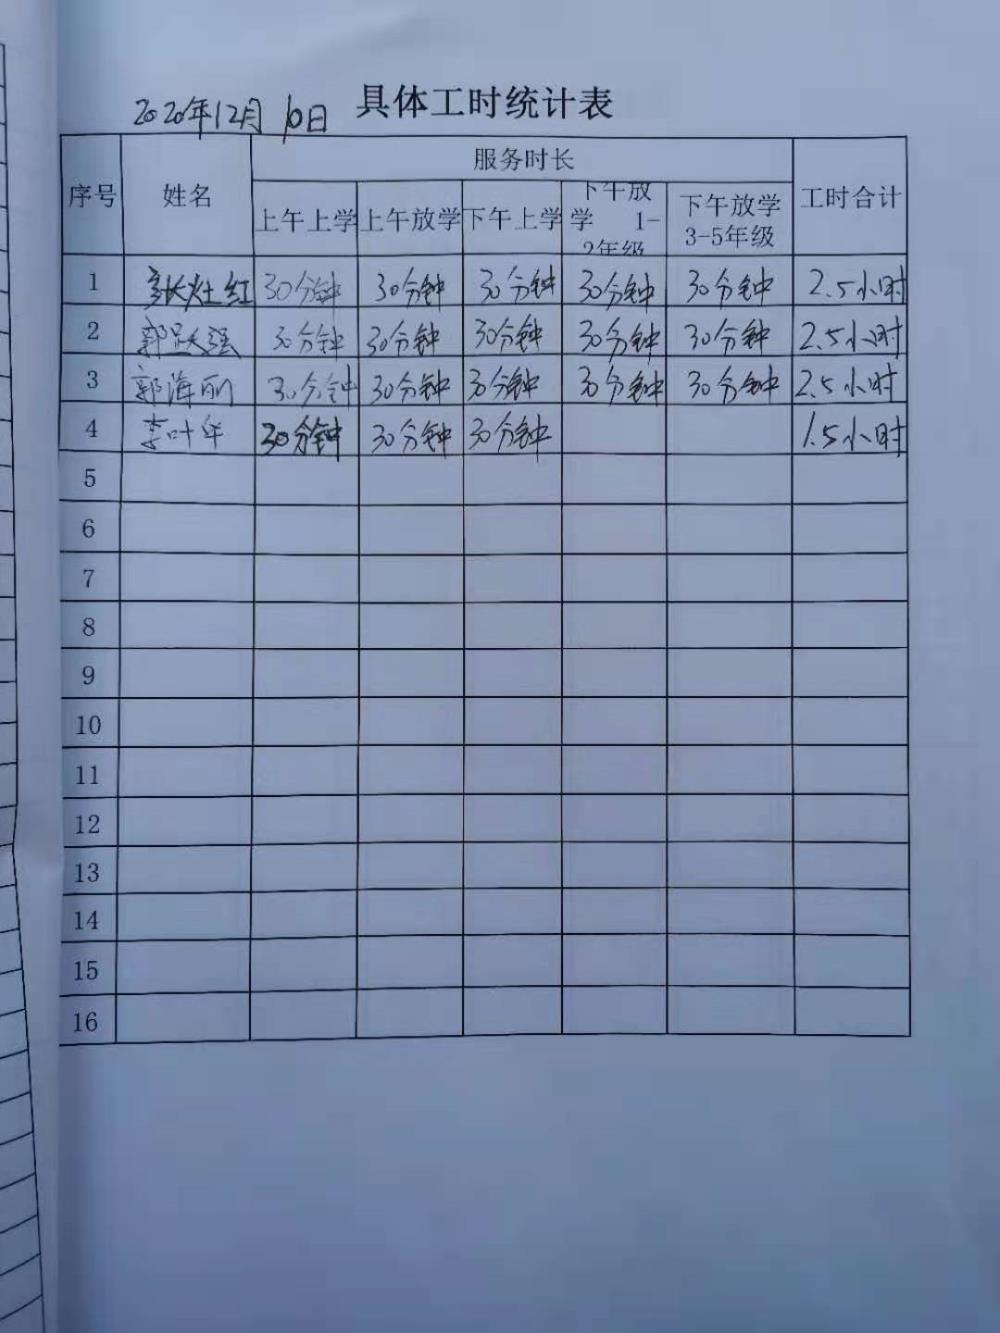 2020年12月10日 具体工时统计表
序号 姓名 服务时长 工时合计
上午上学 上午放学 下午上学 下午放学 1-2年级 下午放学 3-5年级
1 张灶红 30分钟 30分钟 30分钟 30分钟 30分钟 2.5小时
2 郭跃强 30分钟 30分钟 30分钟 30分钟 30分钟 2.5小时
3 郭海丽 30分钟 30分钟 30分钟 30分钟 30分钟 2.5小时
4 李叶年 30分钟 30分钟 30分钟 1.5小时
5
6
7
8
9
10
11
12
13
14
15
16